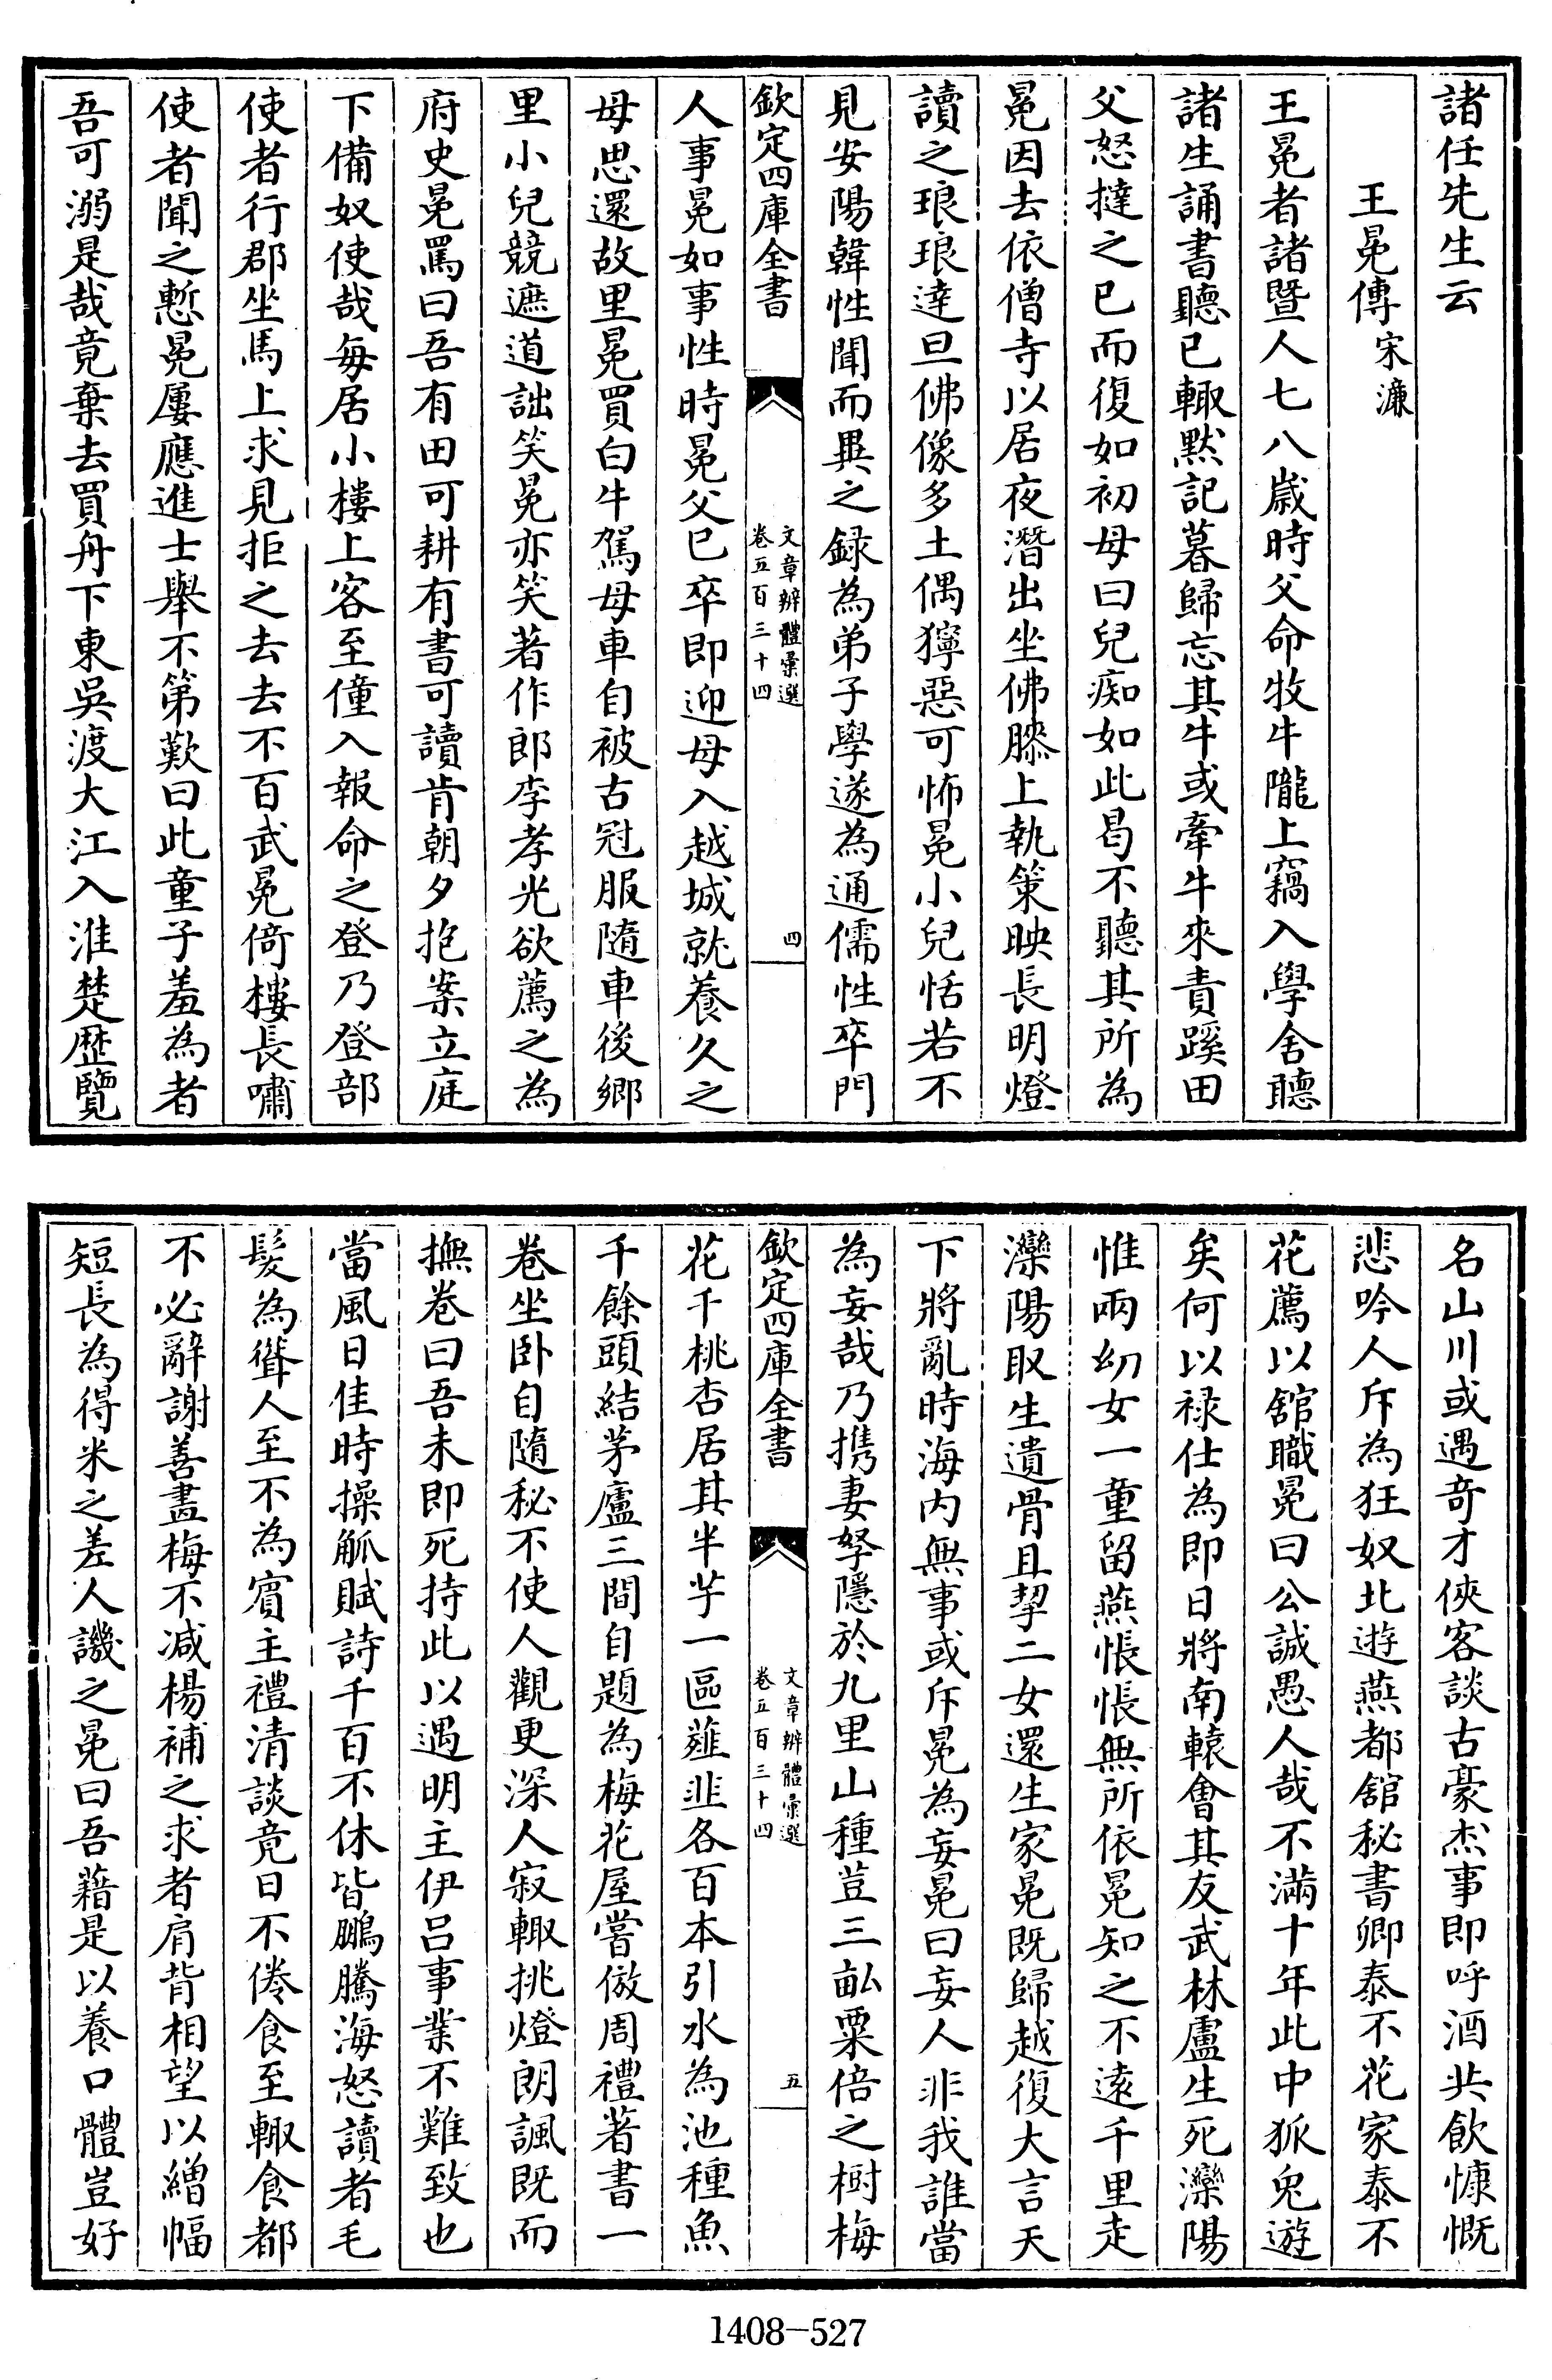 諸任先生云
王冕傳宋濂
王冕者諸暨人七八歲時父命牧牛隴上竊入學舍聽
諸生誦書聽已輙默記暮歸忘其牛或牽牛來責蹊田
父怒撻之已而復如初母曰兒痴如此曷不聽其所為
冕因去依僧寺以居夜潛出坐佛膝上執策映長明燈
讀之琅琅達旦佛像多土偶獰惡可怖冕小兒恬若不
見安陽韓性聞而異之録為弟子學遂為通儒性卒門
欽定四庫全書
文章辨體彙選
卷五百三十四
四
人事冕如事性時冕父已卒即迎母入越城就養久之
母思還故里冕買白牛駕母車自被古冠服隨車後鄉
里小兒競遮道訕笑冕亦笑著作郎李孝光欲薦之為
府史冕罵曰吾有田可耕有書可讀肯朝夕抱案立庭
下備奴使哉每居小樓上客至僮入報命之登乃登部
使者行郡坐馬上求見拒之去去不百武冕倚樓長嘯
使者聞之慙冕屢應進士舉不第歎曰此童子羞為者
吾可溺是哉竟棄去買舟下東吳渡大江入淮楚歴覽
名山川或遇奇才俠客談古豪杰事即呼酒共飲慷慨
悲吟人斥為狂奴北遊燕都舘秘書卿泰不花家泰不
花薦以舘職冕曰公誠愚人哉不滿十年此中狐兔遊
矣何以禄仕為即日將南轅會其友武林盧生死灤陽
惟兩幼女一童留燕悵悵無所依冕知之不遠千里走
灤陽取生遺骨且挈二女還生家冕既歸越復大言天
下將亂時海内無事或斥冕為妄冕曰妄人非我誰當
為妄哉乃携妻孥隱於九里山種荳三畝粟倍之樹梅
欽定四庫全書
文章辨體彙選
卷五百三十四
五
花千桃杏居其半芋一區薤韭各百本引水為池種魚
千餘頭結茅廬三間自題為梅花屋嘗倣周禮著書一
卷坐卧自隨秘不使人觀更深人寂輙挑燈朗諷既而
撫卷曰吾未即死持此以遇明主伊吕事業不難致也
當風日佳時操觚賦詩千百不休皆鵬騰海怒讀者毛
髮為聳人至不為賓主禮清談竟日不倦食至輙食都
不必辭謝善畫梅不减楊補之求者肩背相望以繒幅
短長為得米之差人譏之冕曰吾藉是以養口體豈好
1408-527